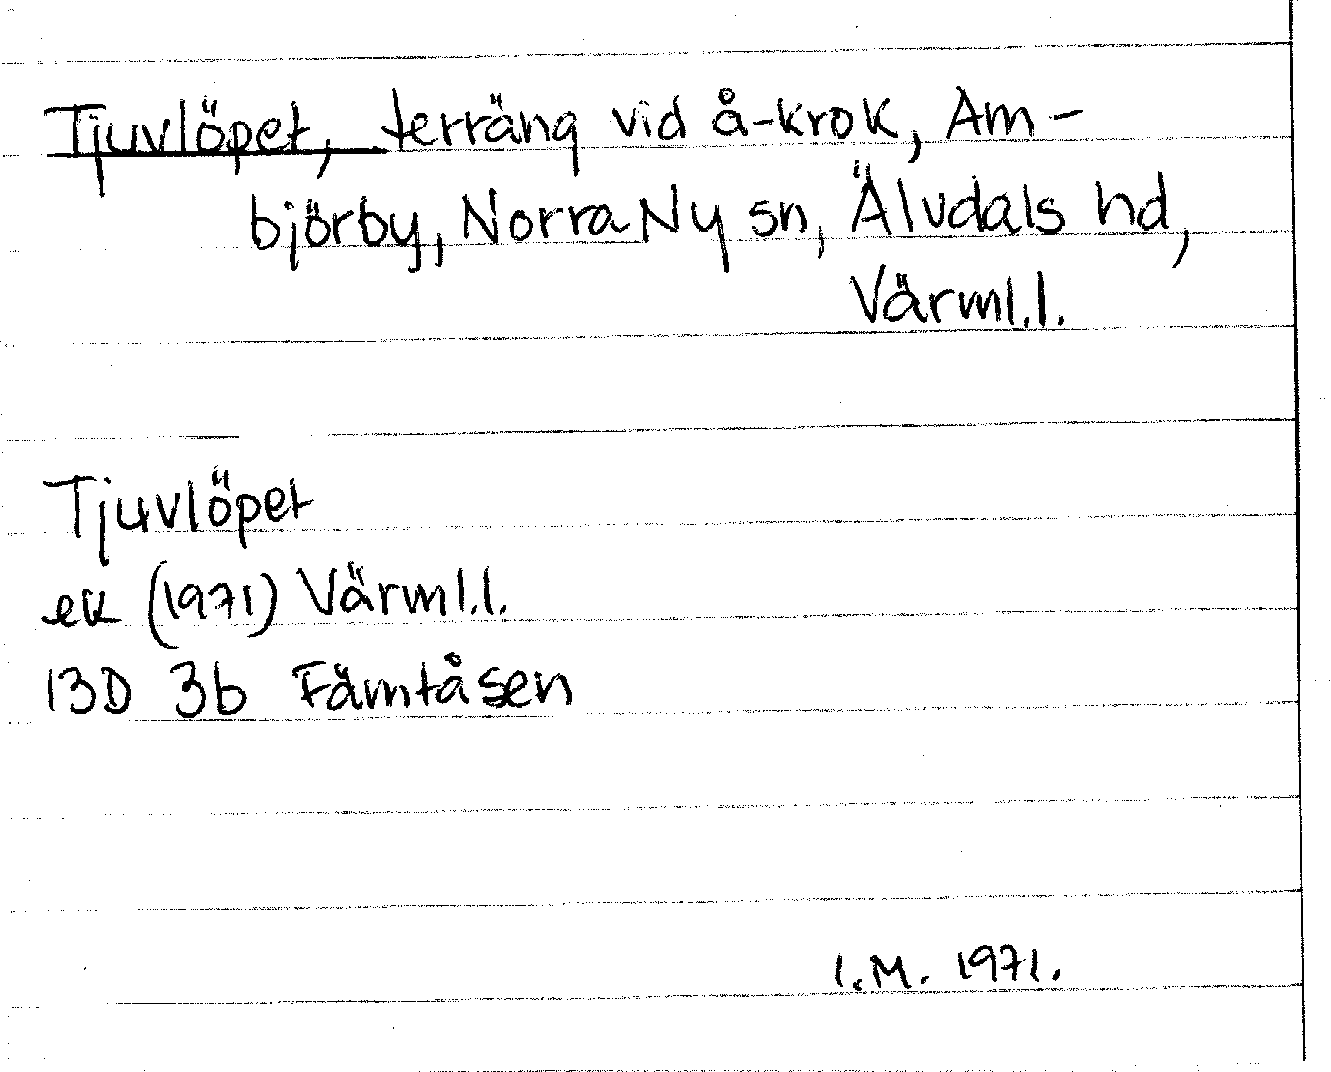 Tjuvlöpet, terräng vid å-krok, Am-
björby, Norra Ny sn, Älvdals hd,
Värml.l.
Tjuvlöpet
ek (1971) Värml.l.
13D 3b Fämtåsen
I.M. 1971.